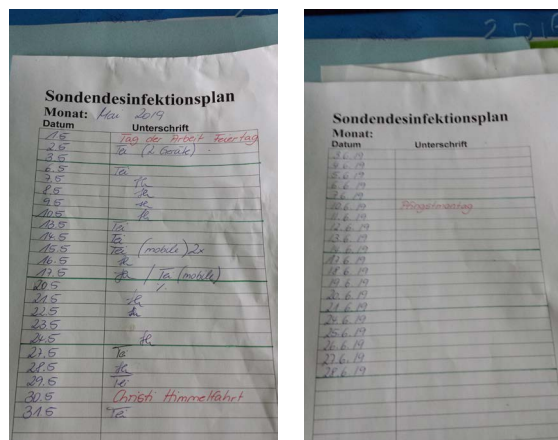 Sondendesinfektionsplan
Monat: Mai 2019
Datum Unterschrift
1.5 Tag der Arbeit Feiertag
2.5 Tei (2 Geräte)
3.5
6.5 Tei
7.5
8.5
9.5
10.5
13.5 Tei
14.5 Tei
15.5 Tei (mobile) 2x
16.5
17.5 / Tei (mobile)
20.5
21.5
22.5
23.5
24.5
27.5 Tei
28.5
29.5 Tei
30.5 Christi Himmelfahrt
31.5 Tei
2 Di
Sondendesinfektionsplan
Monat:
Datum Unterschrift
3.6.19
4.6.19
5.6.19
6.6.19
7.6.19
10.6.19 Pfingstmontag
11.6.19
12.6.19
13.6.19
14.6.19
17.6.19
18.6.19
19.6.19
20.6.19
21.6.19
24.6.19
25.6.19
26.6.19
27.6.19
28.6.19